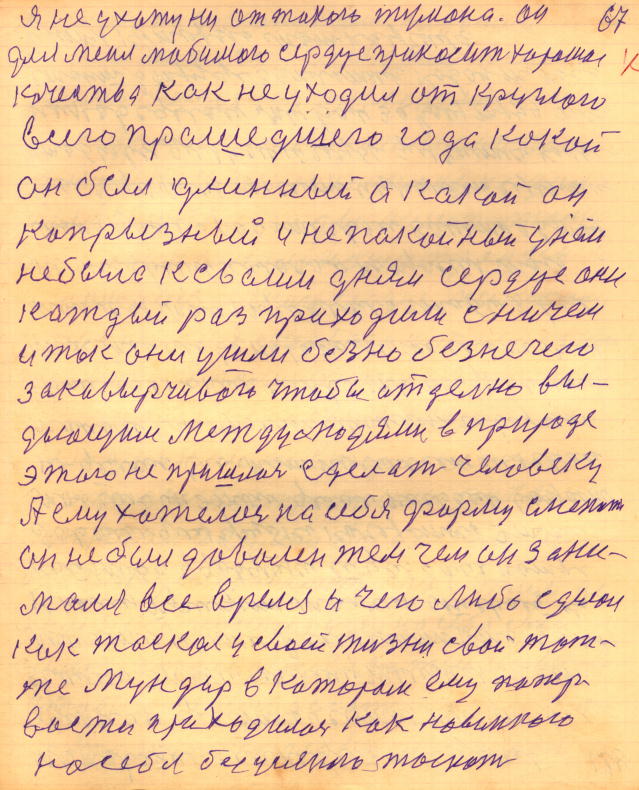 Я не ухожу ни от такого тумона. он 67
для меня любимого сердце приносит хорошая
качества как не уходил от круглого
всего прашедшего года кокой
он был длинный а какой он
копрызный и не покойный у ней
небыла к сваим дням сердце они
каждый раз приходили с ничем
и так они ушли безно безнечего
чтобы отделно вы-
между людями в природе
этого не пришлоя сделат человеку
А ему хателоя на себя форму сменит
он не был даволен тем чем он зани-
маля все время и чего либо сделол
как тоскал у своей жизни свой тот-
же Мундир в катором ему попер-
восты приходилоя как новинного
на себя тоскат